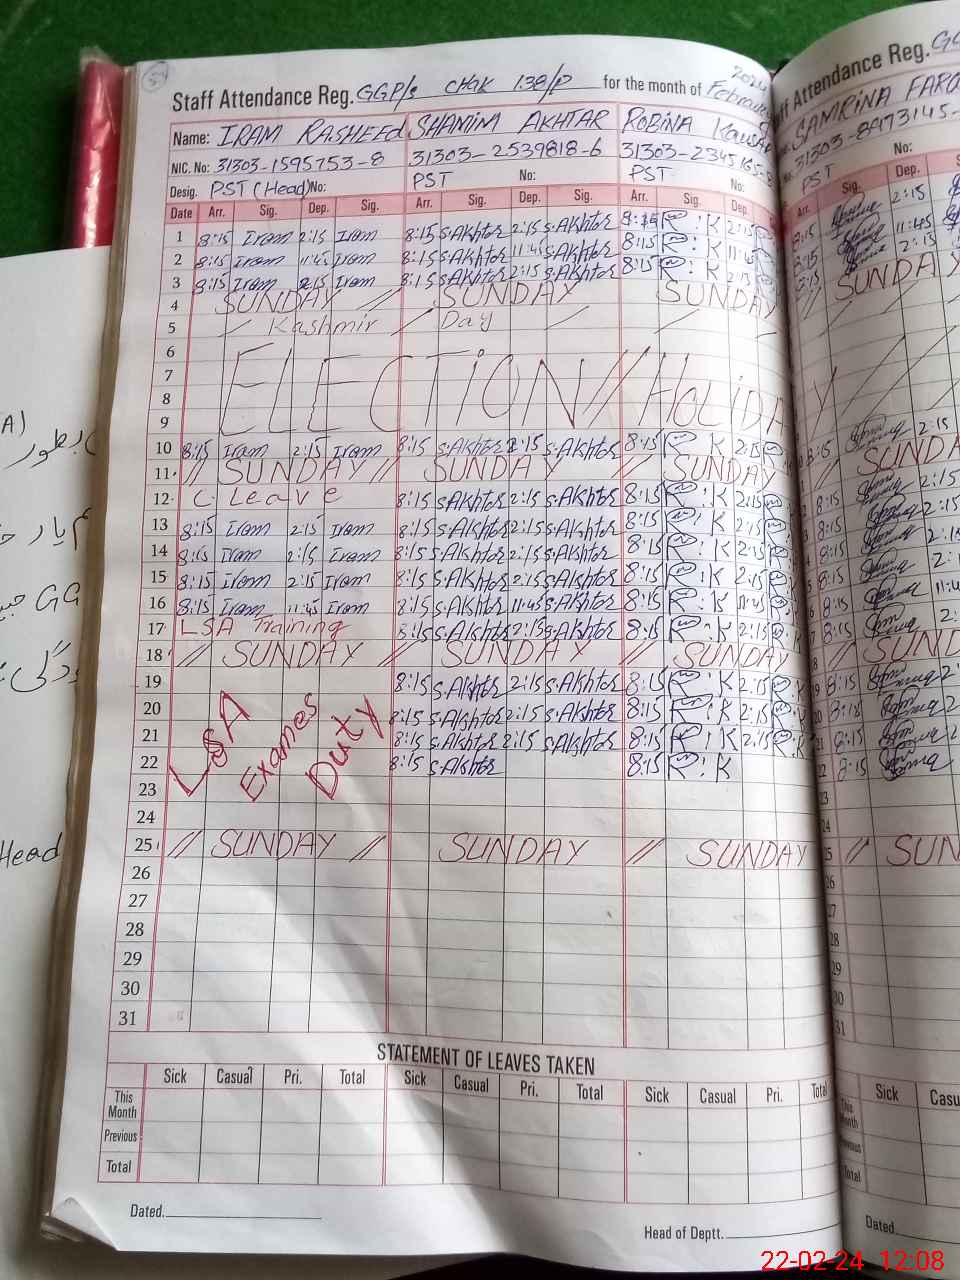 54
Staff Attendance Reg. GGP/s CHAK 138/P for the month of February 2024
Name: IRAM RASHEED SHAMIM AKHTAR ROBINA Kausar
NIC. No: 31303-1595753-8 31303-2539818-6 31303-2345165-
Desig. PST (Head) No: PST No: PST No:
Date Arr. Sig. Dep. Sig. Arr. Sig. Dep. Sig. Arr. Sig. Dep.
1 8:15 Iram 2:15 Iram 8:15 S.Akhtar 2:15 S.Akhtar 8:15 R.K 2:15
2 8:15 Iram 11:45 Iram 8:15 S.Akhtar 11:45 S.Akhtar 8:15 R.K 11:45
3 8:15 Iram 2:15 Iram 8:15 S.Akhtar 2:15 S.Akhtar 8:15 R:K 2:15
4 SUNDAY // SUNDAY SUNDAY
5 Kashmir Day
6
7 ELECTION // HOLIDAY
8
9
10 8:15 Iram 2:15 Iram 8:15 S.Akhtar 2:15 S.Akhtar 8:15 R:K 2:15
11 // SUNDAY // SUNDAY // SUNDAY
12 C. Leave 8:15 S.Akhtar 2:15 S.Akhtar 8:15 R:K 2:15
13 8:15 Iram 2:15 Iram 8:15 S.Akhtar 2:15 S.Akhtar 8:15 R:K 2:15
14 8:15 Iram 2:15 Iram 8:15 S.Akhtar 2:15 S.Akhtar 8:15 R:K 2:15
15 8:15 Iram 2:15 Iram 8:15 S.Akhtar 2:15 S.Akhtar 8:15 R:K 2:15
16 8:15 Iram 11:45 Iram 8:15 S.Akhtar 11:45 S.Akhtar 8:15 R:K 11:45
17 LSA Training 8:15 S.Akhtar 2:15 S.Akhtar 8:15 R:K 2:15
18 // SUNDAY // SUNDAY // SUNDAY
19 8:15 S.Akhtar 2:15 S.Akhtar 8:15 R:K 2:15
20 8:15 S.Akhtar 2:15 S.Akhtar 8:15 R:K 2:15
21 8:15 S.Akhtar 2:15 S.Akhtar 8:15 R:K 2:15
22 8:15 S.Akhtar 8:15 R:K
LSA Exames Duty
23
24
25 // SUNDAY // SUNDAY // SUNDAY
26
27
28
29
30
31
STATEMENT OF LEAVES TAKEN
Sick Casual Pri. Total Sick Casual Pri. Total Sick Casual Pri. Total
This Month
Previous
Total
Dated.
Head of Deptt.
Attendance Reg.
SAMRINA
31303-8473145-
PST No:
Arr. Sig. Dep.
8:15 2:15
8:15 11:45
8:15 2:15
// SUNDAY
8:15 2:15
SUNDAY
8:15 2:15
8:15 2:15
8:15
8:15
8:15 11:4
8:15 2:
SUND
8:15
8:15
8:15
8:15
// SUN
Sick
This Month
Previous
Total
Dated
Head
بطور
GG
22-02-24 12:08